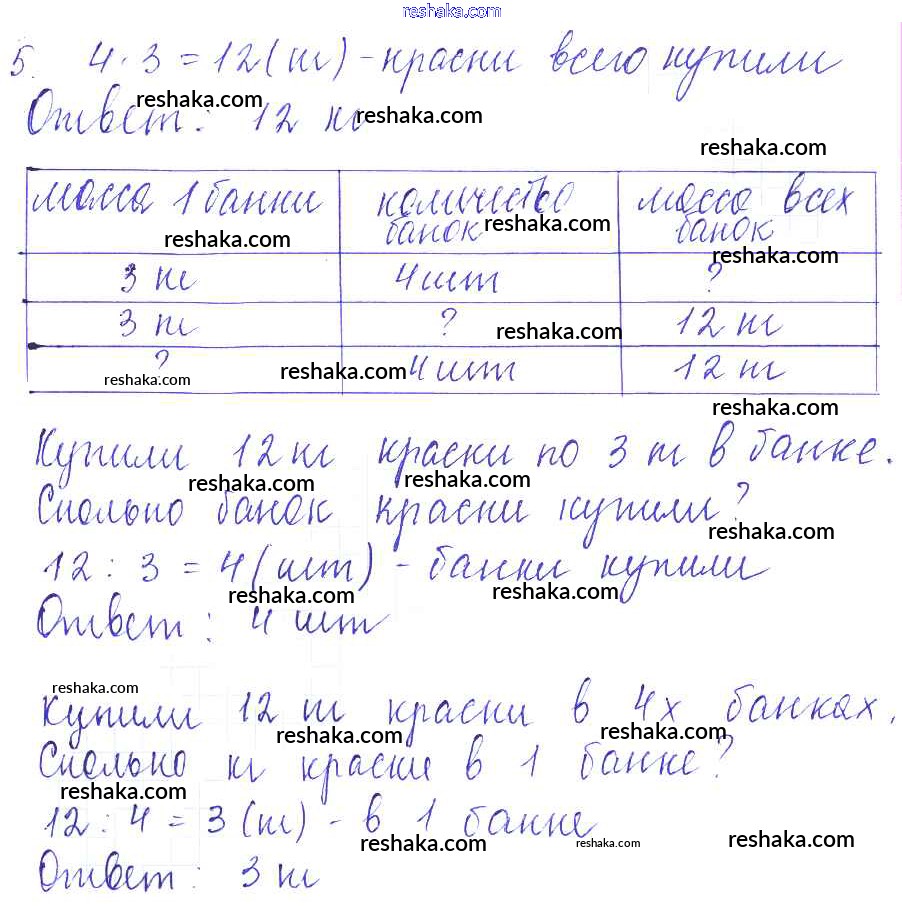 reshaka.com
5. 4 · 3 = 12 (кг) - краски всего купили
reshaka.com
Ответ: 12 кг
reshaka.com
reshaka.com
масса 1 банки количество банок масса всех банок
reshaka.com reshaka.com reshaka.com
3 кг 4 шт ?
3 кг ? reshaka.com 12 кг
? 4 шт 12 кг
reshaka.com reshaka.com
reshaka.com
Купили 12 кг краски по 3 кг в банке.
reshaka.com reshaka.com
Сколько банок краски купили?
reshaka.com
12 : 3 = 4 (шт) - банки купили
reshaka.com reshaka.com
Ответ: 4 шт
reshaka.com
Купили 12 кг краски в 4х банках.
reshaka.com reshaka.com
Сколько кг краски в 1 банке?
reshaka.com
12 : 4 = 3 (кг) - в 1 банке
reshaka.com reshaka.com reshaka.com
Ответ: 3 кг